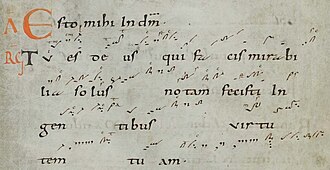 A Esto mihi In dm̄.
R TU es de us qui fa cis mirabi
lia solus notam fecisti In
gen tibus virtu
tem tu am.